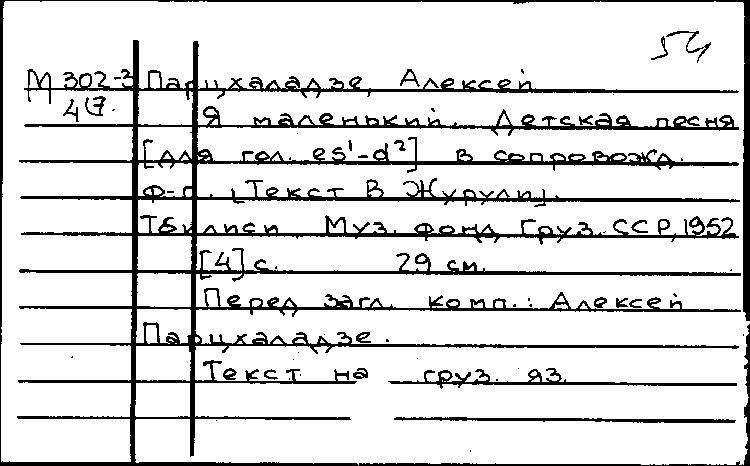 54
М 302-3 Парцхаладзе, Алексей
417. Я маленький. Детская песня
[для гол. es¹-d²] в сопровожд.
ф-п. [Текст В Журули].
Тбилиси Муз. фонд Груз. ССР, 1952
[4] с. 29 см.
Перед загл. комп.: Алексей
Парцхаладзе.
Текст на груз. яз.